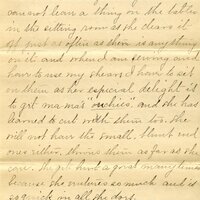 can not leave a thing on the table
in the sitting room as she clears it
off just as often as there is anything
on it and when I am sewing and
have to use my shears I have to set
on them as her especial delight it
to get ma ma's and she had
learned to cut with them too. She
will not have the small, blunt
ones either, throws them as far as she
can. She get hurt a good many times
because she ventures so much and is
so quick on all the door